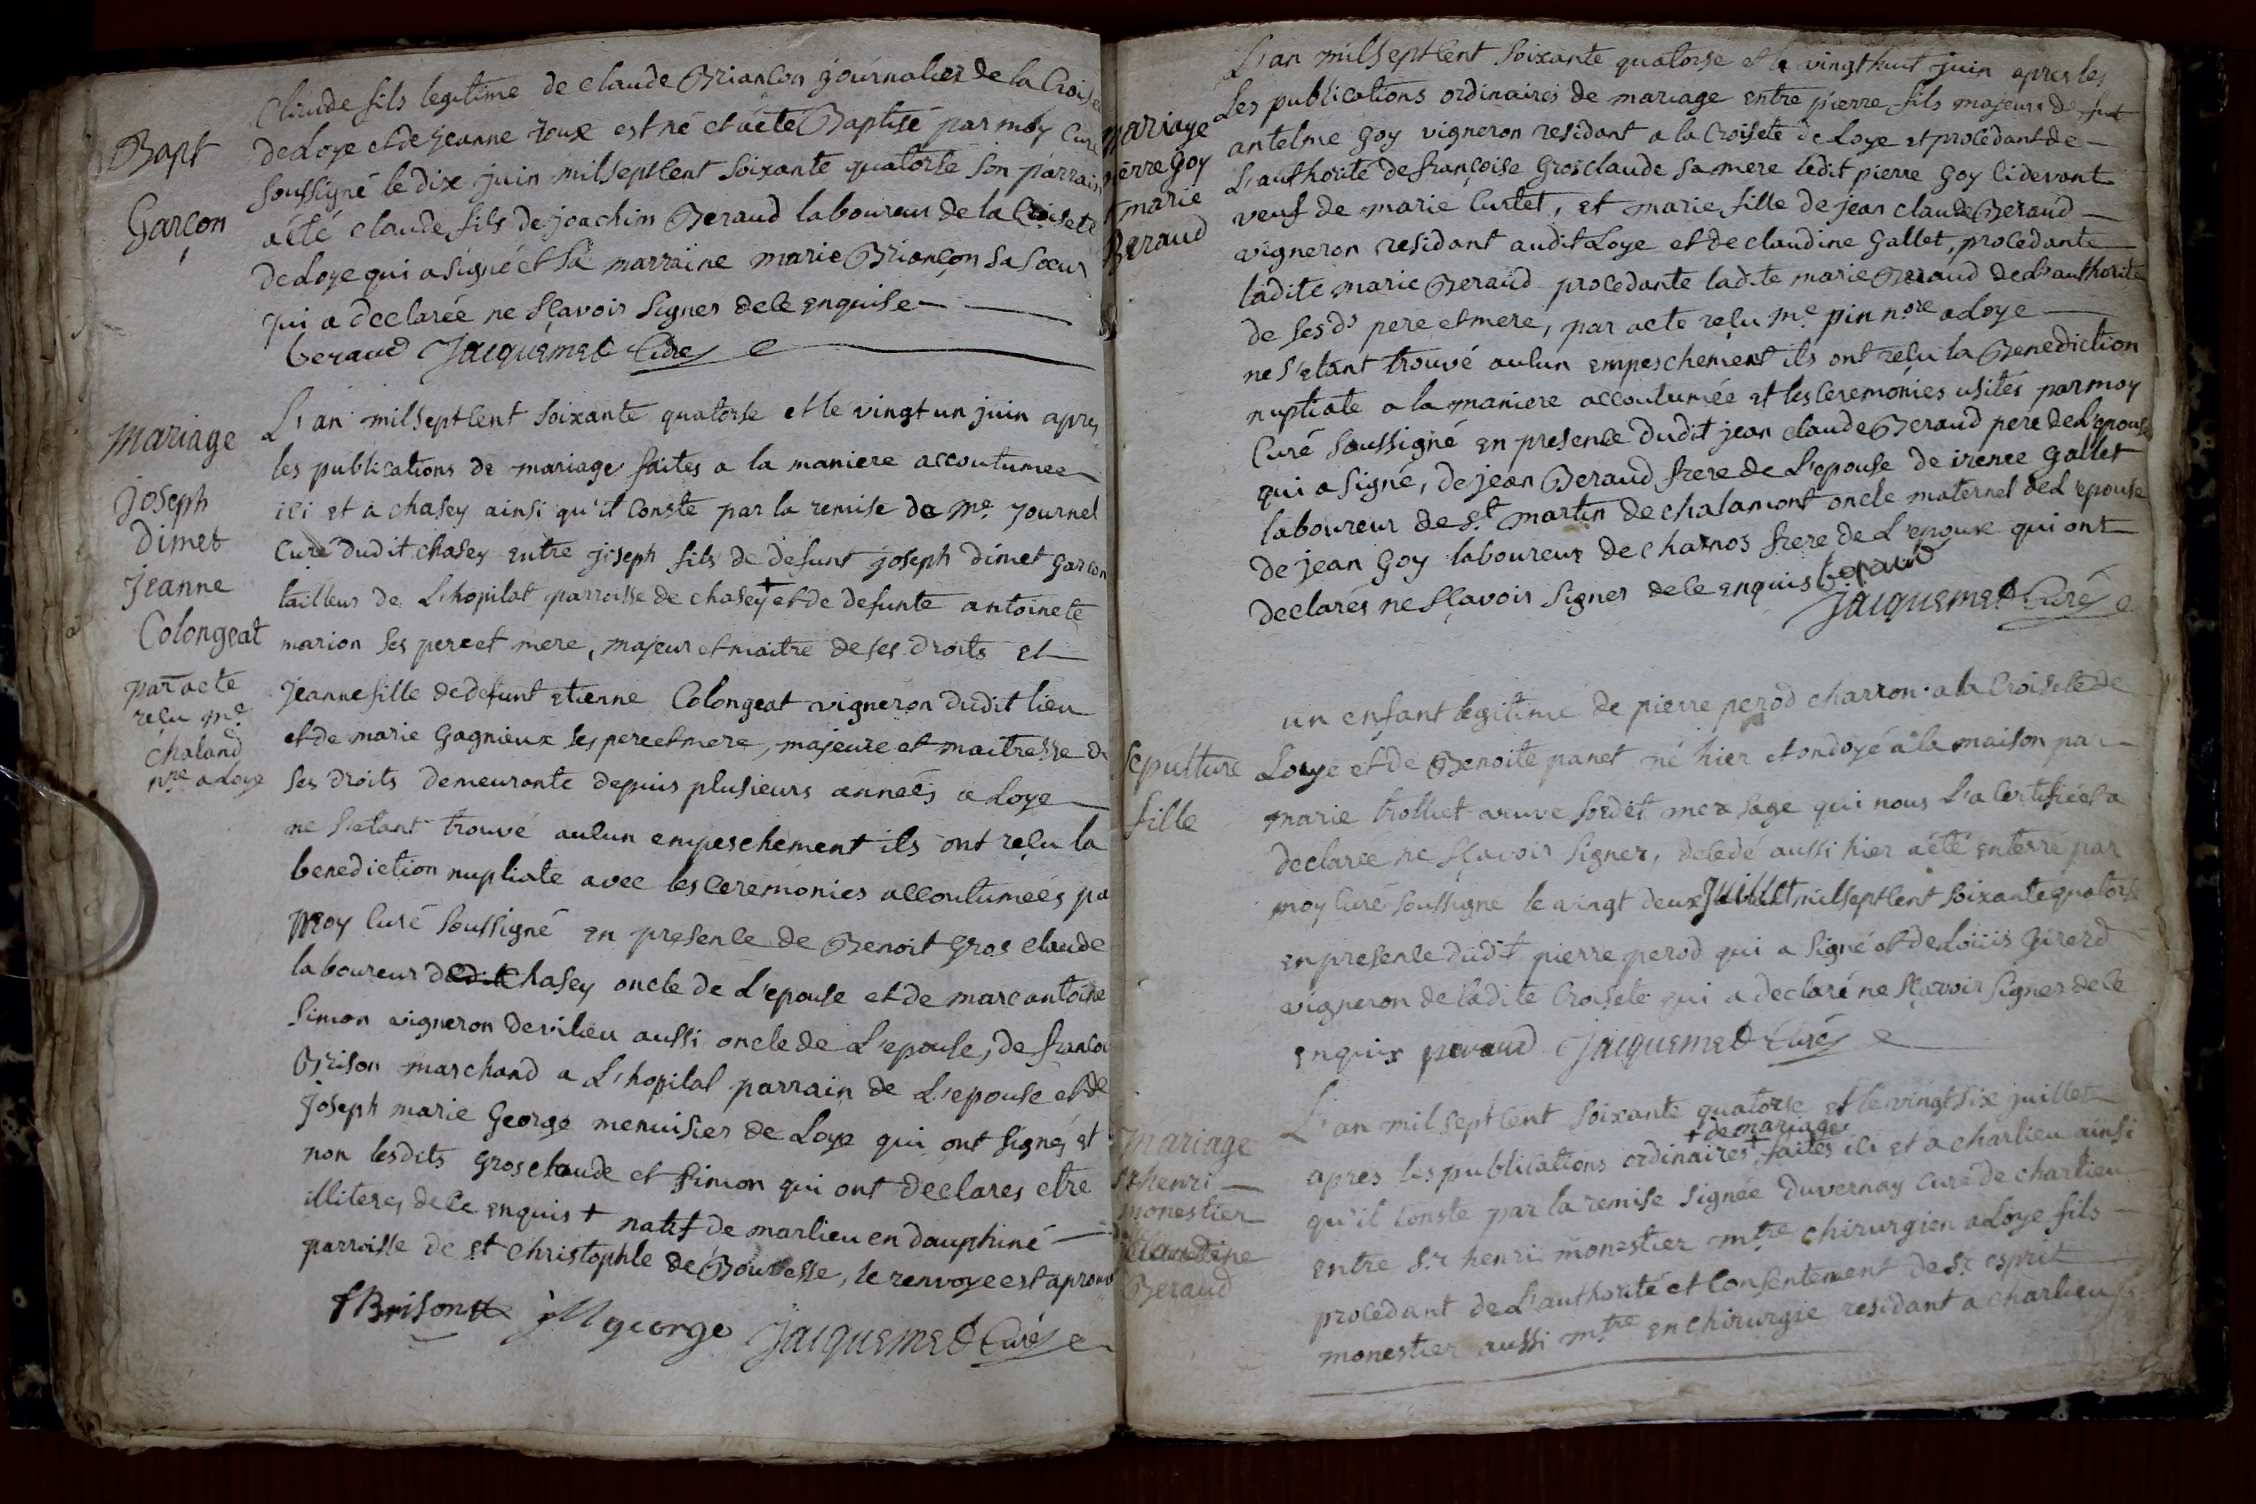 Bapt
Garçon
Claude fils legitime de claude Briancon journalier de la Croisete
de Loye et de jeanne roux est né et aété Baptisé par moy Curé
soussigné le dix juin milseptcent soixante quatorse son parrain
aété claude fils de joachim Beraud laboureur de la Croisete
de Loye qui a signé et sa marraine marie Briançon sa soeur
qui a declarée ne sçavoir signer dece enquise
beraud Jacquemet Curé
mariage
joseph
Dimet
jeanne
Colongeat
par acte
reçu me
chaland
nre a Loye
L'an milseptcent soixante quatorse et le vingt un juin apres
les publications de mariage faites a la maniere accoutumee
ici et a chasey ainsi qu'il conste par la remise de me journel
Curé dudit chasey entre joseph fils de defunt joseph dimet garcon
tailleur de L'hopital parroisse de chasey + et de defunte antoinete
marion ses pere et mere, majeur et maitre de ses droits et
jeanne fille de defunt etienne Colongeat vigneron dudit lieu
et de marie Gagnieux ses pere et mere, majeure et maitresse de
ses droits demeurante depuis plusieurs années a Loye
ne s'etant trouvé aucun empeschement ils ont reçu la
benediction nuptiale avec les ceremonies accoutumées pa
moy curé soussigné en presence de Benoit Gros claude
laboureur dudit chasey oncle de L'epouse et de marc antoine
simon vigneron de vilieu aussi oncle de L'epouse, de francois
Brison marchand a L'hopital parrain de L'epouse et de
joseph marie George menuisier de Loye qui ont signés et
non lesdits gros claude et simon qui ont declares etre
illiteres dece enquis + natif de marlieu en dauphiné
parroisse de st christophle de Bouvesse, le renvoye est aprouvé
f Brison jM george Jacquemet Curé
mariage
pierre Goy
marie
Beraud
L'an milseptcent soixante quatorse et le vingt huit juin apres les
Les publications ordinaires de mariage entre pierre fils majeur de fut
antelme Goy vigneron residant a la Croisete de Loye et procedant de
L'authorité de françoise Grosclaude sa mere ledit pierre Goy cidevant
veuf de marie Curtet, et marie fille de jean claude Beraud
vigneron residant audit Loye et de claudine Gallet, procedante
ladite marie Beraud procedante ladite marie Beraud de L'authorité
de ses ds pere et mere, par acte reçu me pin nore a Loye
ne s'etant trouvé aucun empeschement ils ont reçu la Benediction
nuptiale a la maniere accoutumée et les ceremonies usités par moy
Curé soussigné en presence dudit jean claude Beraud pere de L'epouse
qui a signé, de jean Beraud frere de L'epouse de irenee Gallet
laboureur de st martin de chalamont oncle maternel de L'epouse
de jean Goy laboureur de charnos frere de L'epoux qui ont
declarés ne sçavoir signer dece enquis beraud
Jacquemet Curé
sepulture
fille
un enfant legitime de pierre perod charron a la Croisete de
Loye et de Benoite panet né hier et ondoyé a la maison par
marie trolliet veuve sordet mere sage qui nous L'a certifié et a
declarée ne sçavoir signer, decedé aussi hier aété enterré par
moy curé soussigné le vingt deux juillet milseptcent soixante quatorse
en presence dudit pierre perod qui a signé et de Louis Girerd
vigneron de ladite Croisete qui a declaré ne sçavoir signer dece
enquis Jacquemet Curé
mariage
sr henri
monestier
claudine
Beraud
L'an milseptcent soixante quatorse et le vingt six juillet
+ de mariage
apres les publications ordinaires + faites ici et a charlieu ainsi
qu'il conste par la remise signée duvernay curé de charlieu
entre sr henri monestier mtre chirurgien a Loye fils
procedant de L'authorité et consentement de sr esprit
monestier aussi mtre en chirurgie residant a charlieu